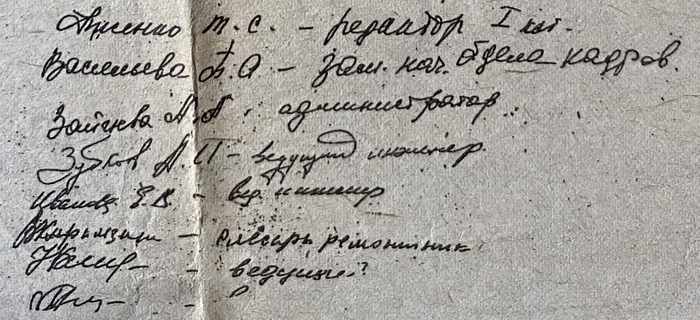 т.с. - редактор I кат.
Васильева Ф.А - зам. нач. отдела кадров.
Зайцева А.А. администратор.
Зубков А.П - ведущий инженер.
Иванов Е.В. - вед. инженер
- слесарь ремонтник
- ведущий?